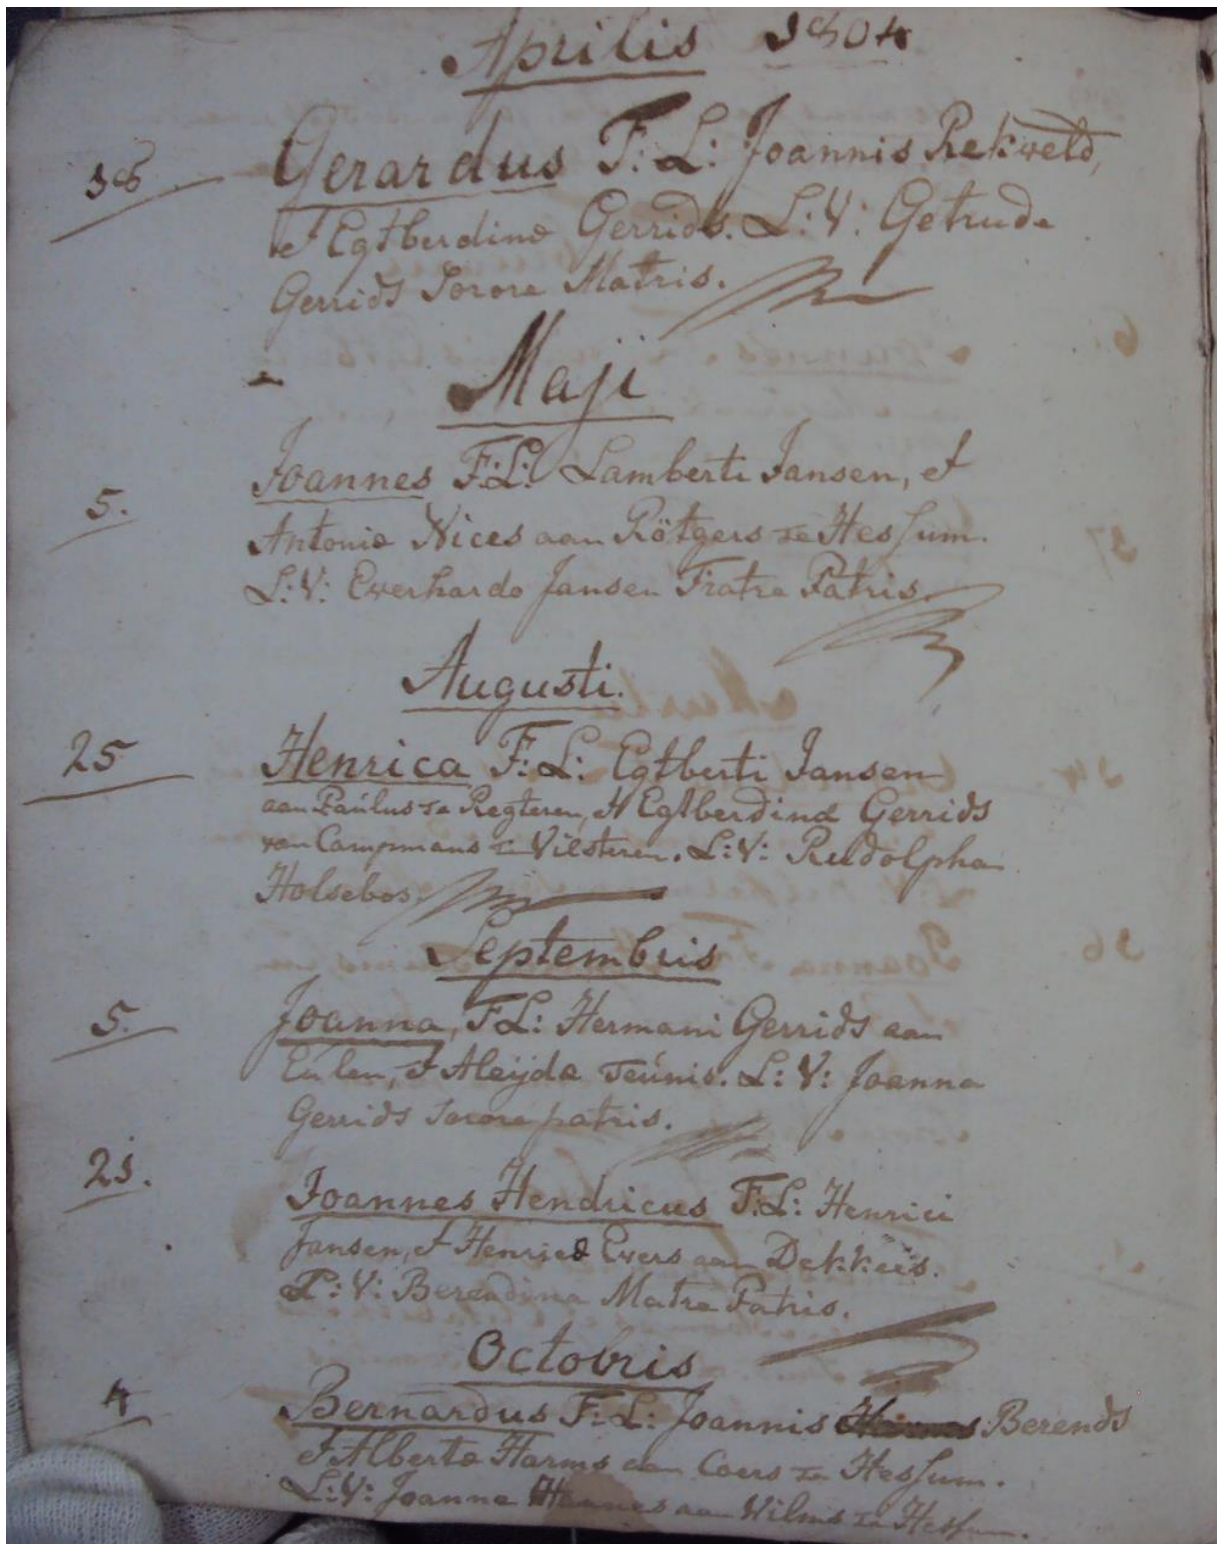 Aprilis 1804
18 Gerardus F: L: Joannis Rekveld,
et Egtberdinæ Gerrids. L: V: Getrude
Gerrids Sorore Matris.
Maji
Joannes F: L: Lamberti Jansen, et
5. Antoniæ Nices aan Rötgers te Hessum.
L: V: Everhardo Jansen Fratre Patris.
Augusti.
25 Henrica F: L: Egtberti Jansen
aan Paulus te Regteren, et Egtberdinæ Gerrids
van Campmans te Vilsteren. L: V: Rudolpha
Holsebos.
Septembris
5. Joanna, F L: Hermani Gerrids aan
Eulen, et Aleijda Teunis. L: V: Joanna
Gerrids Sorore patris.
21. Joannes Hendricus F: L: Henrici
Jansen, et Henricæ Evers aan Dekkers.
L: V: Berendina Matre Patris.
Octobris
4 Bernardus F: L: Joannis Berends
et Alberta Harms aan Coers te Hessum.
L: V: Joanna Hannes aan Wilms te Hessum.